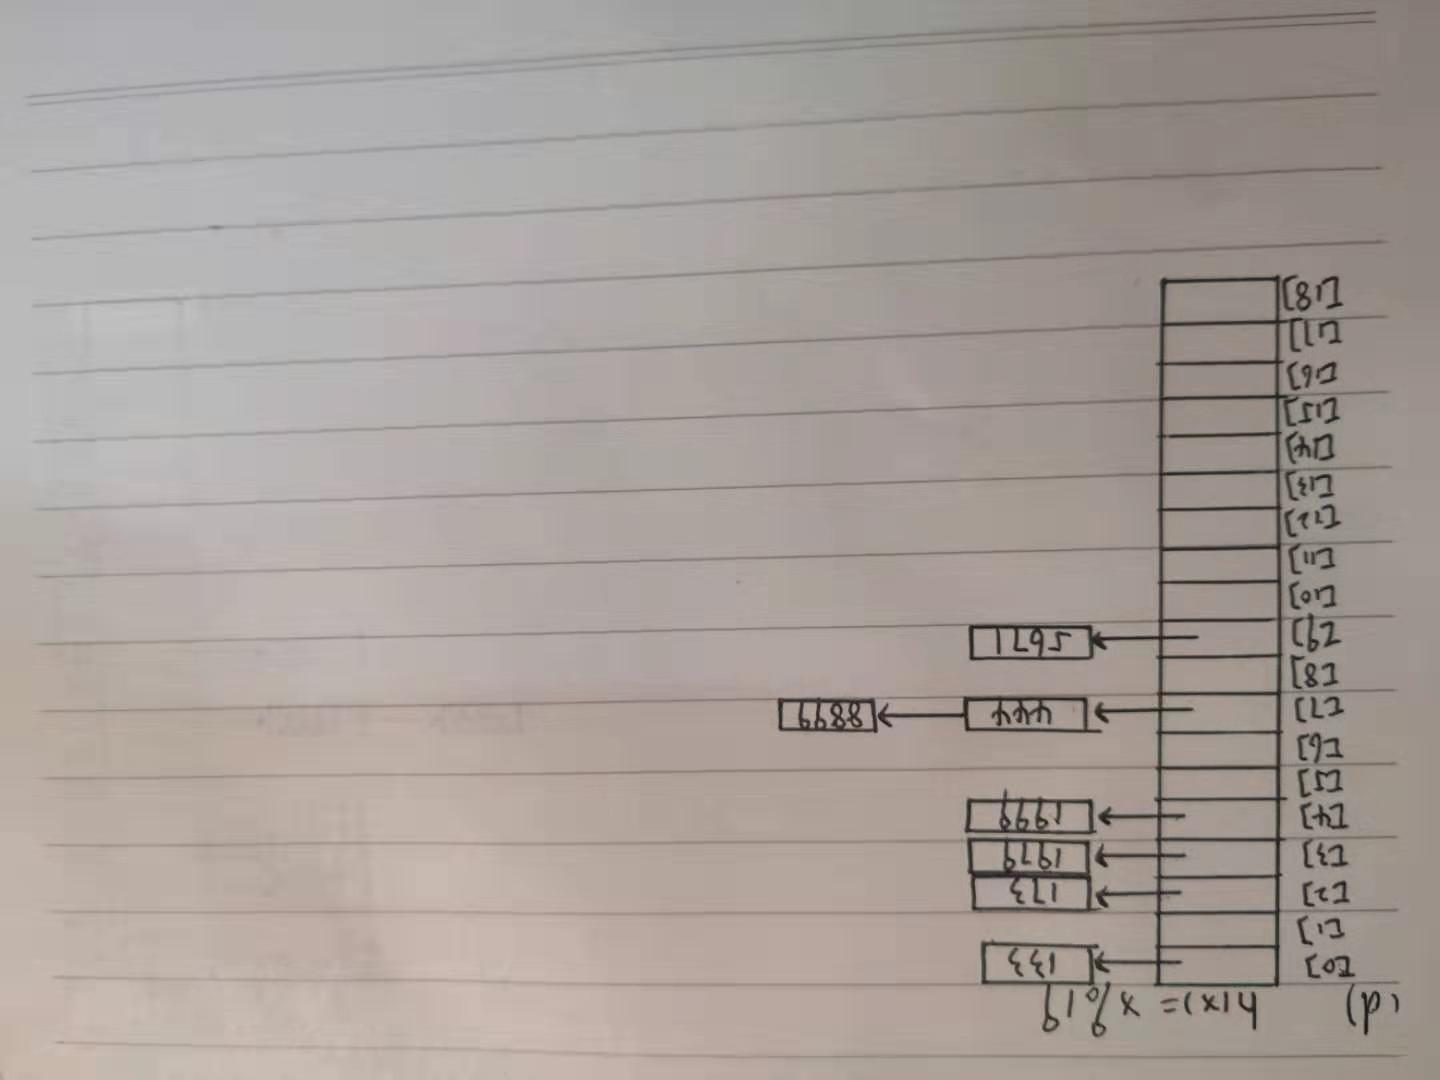 (d) h(x) = x%19
[0] 133
[1]
[2] 173
[3] 1979
[4] 1999
[5]
[6]
[7] 444 8899
[8]
[9] 5671
[10]
[11]
[12]
[13]
[14]
[15]
[16]
[17]
[18]